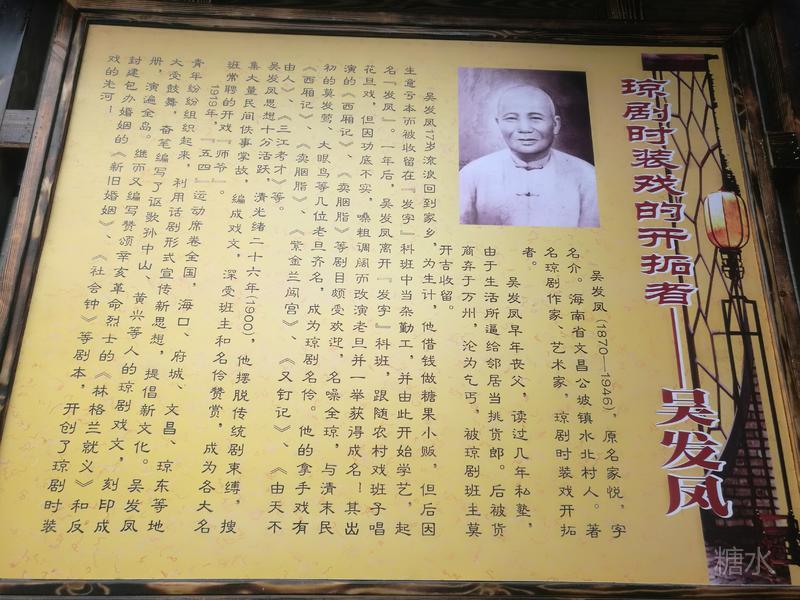 琼剧时装戏的开拓者——吴发凤
吴发凤(1870—1946)，原名家悦，字
名介。海南省文昌公坡镇水北村人。著
名琼剧作家、艺术家，琼剧时装戏开拓
者。
吴发凤早年丧父，读过几年私塾，
由于生活所逼给邻居当挑货郎。后被货
商弃于万州，沦为乞丐，被琼剧班主莫
开吉收留。
吴发凤17岁流浪回到家乡，为生计，他借钱做糖果小贩，但后因
生意亏本而被收留在『发字』科班中当杂勤工，并由此开始学艺，起
名『发凤』。一年后，吴发凤离开『发字』科班，跟随农村戏班子唱
花旦戏，但因功底不实，嗓粗调阔而改演老旦并一举获得成名！其出
演的《西厢记》、《卖胭脂》等剧目颇受欢迎，名噪全琼，与清末民
初的莫发莺、大眼鸟等几位老旦齐名，成为琼剧名伶。他的拿手戏有
《西厢记》、《卖胭脂》、《紫金兰闯宫》、《又钉记》、《由天不
由人》、《三江考才》等。
吴发凤思想十分活跃，清光绪二十六年(1900)，他摆脱传统剧束缚，搜
集大量民间佚事掌故，编成戏文，深受班主和名伶赞赏，成为各大名
班常聘的开戏『师爷』。
1919年，『五四』运动席卷全国，海口、府城、文昌、琼东等地
青年纷纷组织起来，利用话剧形式宣传新思想，提倡新文化。吴发凤
大受鼓舞，奋笔编写了讴歌孙中山、黄兴等人的琼剧戏文，刻印成
册，演遍全岛。继而又编写赞颂辛亥革命烈士的《林格兰就义》和反
封建包办婚姻的《新旧婚姻》、《社会钟》等剧本，开创了琼剧时装
戏的先河！
糖水